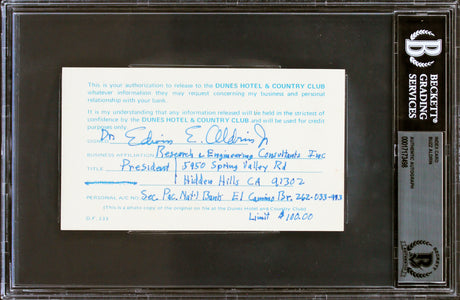 This is your authorization to release to the DUNES HOTEL & COUNTRY CLUB
whatever information they may request concerning my business and personal
relationship with your bank.
It is my understanding that any information released will be held in the strictest of
confidence by the DUNES HOTEL & COUNTRY CLUB and will be used for credit
purposes only.
SIGNED Dr. Edwin E. Aldrin Jr
BUSINESS AFFILIATION Research & Engineering Consultants Inc
TITLE President 5950 Spring Valley Rd
Hidden Hills CA 91302
PERSONAL A/C NO. Sec. Pac. Nat'l Bank El Camino Br. 262-033-983
(This is a photo copy of the original on file at the Dunes Hotel and Country Club)
D.F. 233
Limit $100.00
BECKETT
GRADING
SERVICES
INDEX CARD
BUZZ ALDRIN
AUTHENTIC AUTOGRAPH
BECKETT